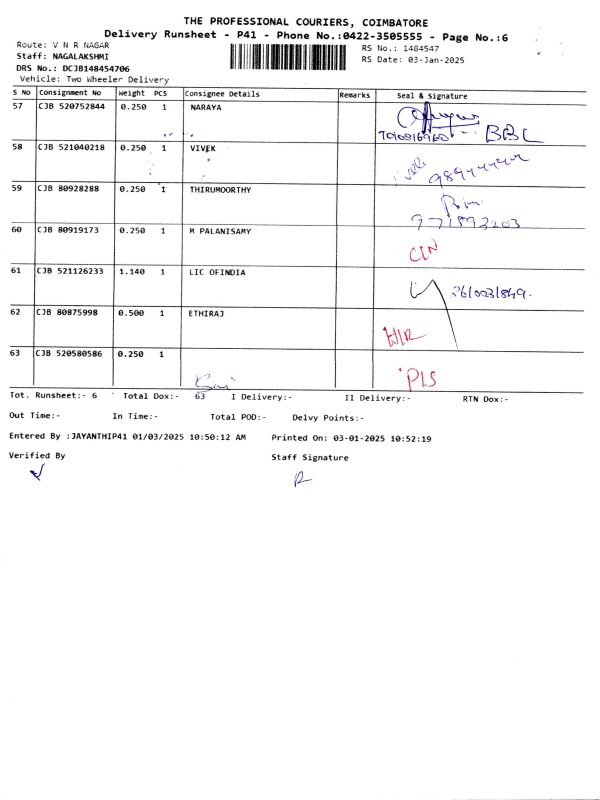 THE PROFESSIONAL COURIERS, COIMBATORE
Delivery Runsheet - P41 - Phone No.:0422-3505555 - Page No.:6
Route: V N R NAGAR
RS No.: 1484547
Staff: NAGALAKSHMI
RS Date: 03-Jan-2025
DRS No.: DCJB148454706
Vehicle: Two Wheeler Delivery
S No Consignment No Weight PCS Consignee Details Remarks Seal & Signature
57 CJB 520752844 0.250 1 NARAYA
BBC
58 CJB 521040218 0.250 1 VIVEK
59 CJB 80928288 0.250 1 THIRUMOORTHY
60 CJB 80919173 0.250 1 M PALANISAMY
61 CJB 521126233 1.140 1 LIC OFINDIA
62 CJB 80875998 0.500 1 ETHIRAJ
63 CJB 520580586 0.250 1
Tot. Runsheet:- 6 Total Dox:- 63 I Delivery:- II Delivery:- RTN Dox:-
Out Time:- In Time:- Total POD:- Delvy Points:-
Entered By :JAYANTHIP41 01/03/2025 10:50:12 AM Printed On: 03-01-2025 10:52:19
Verified By Staff Signature